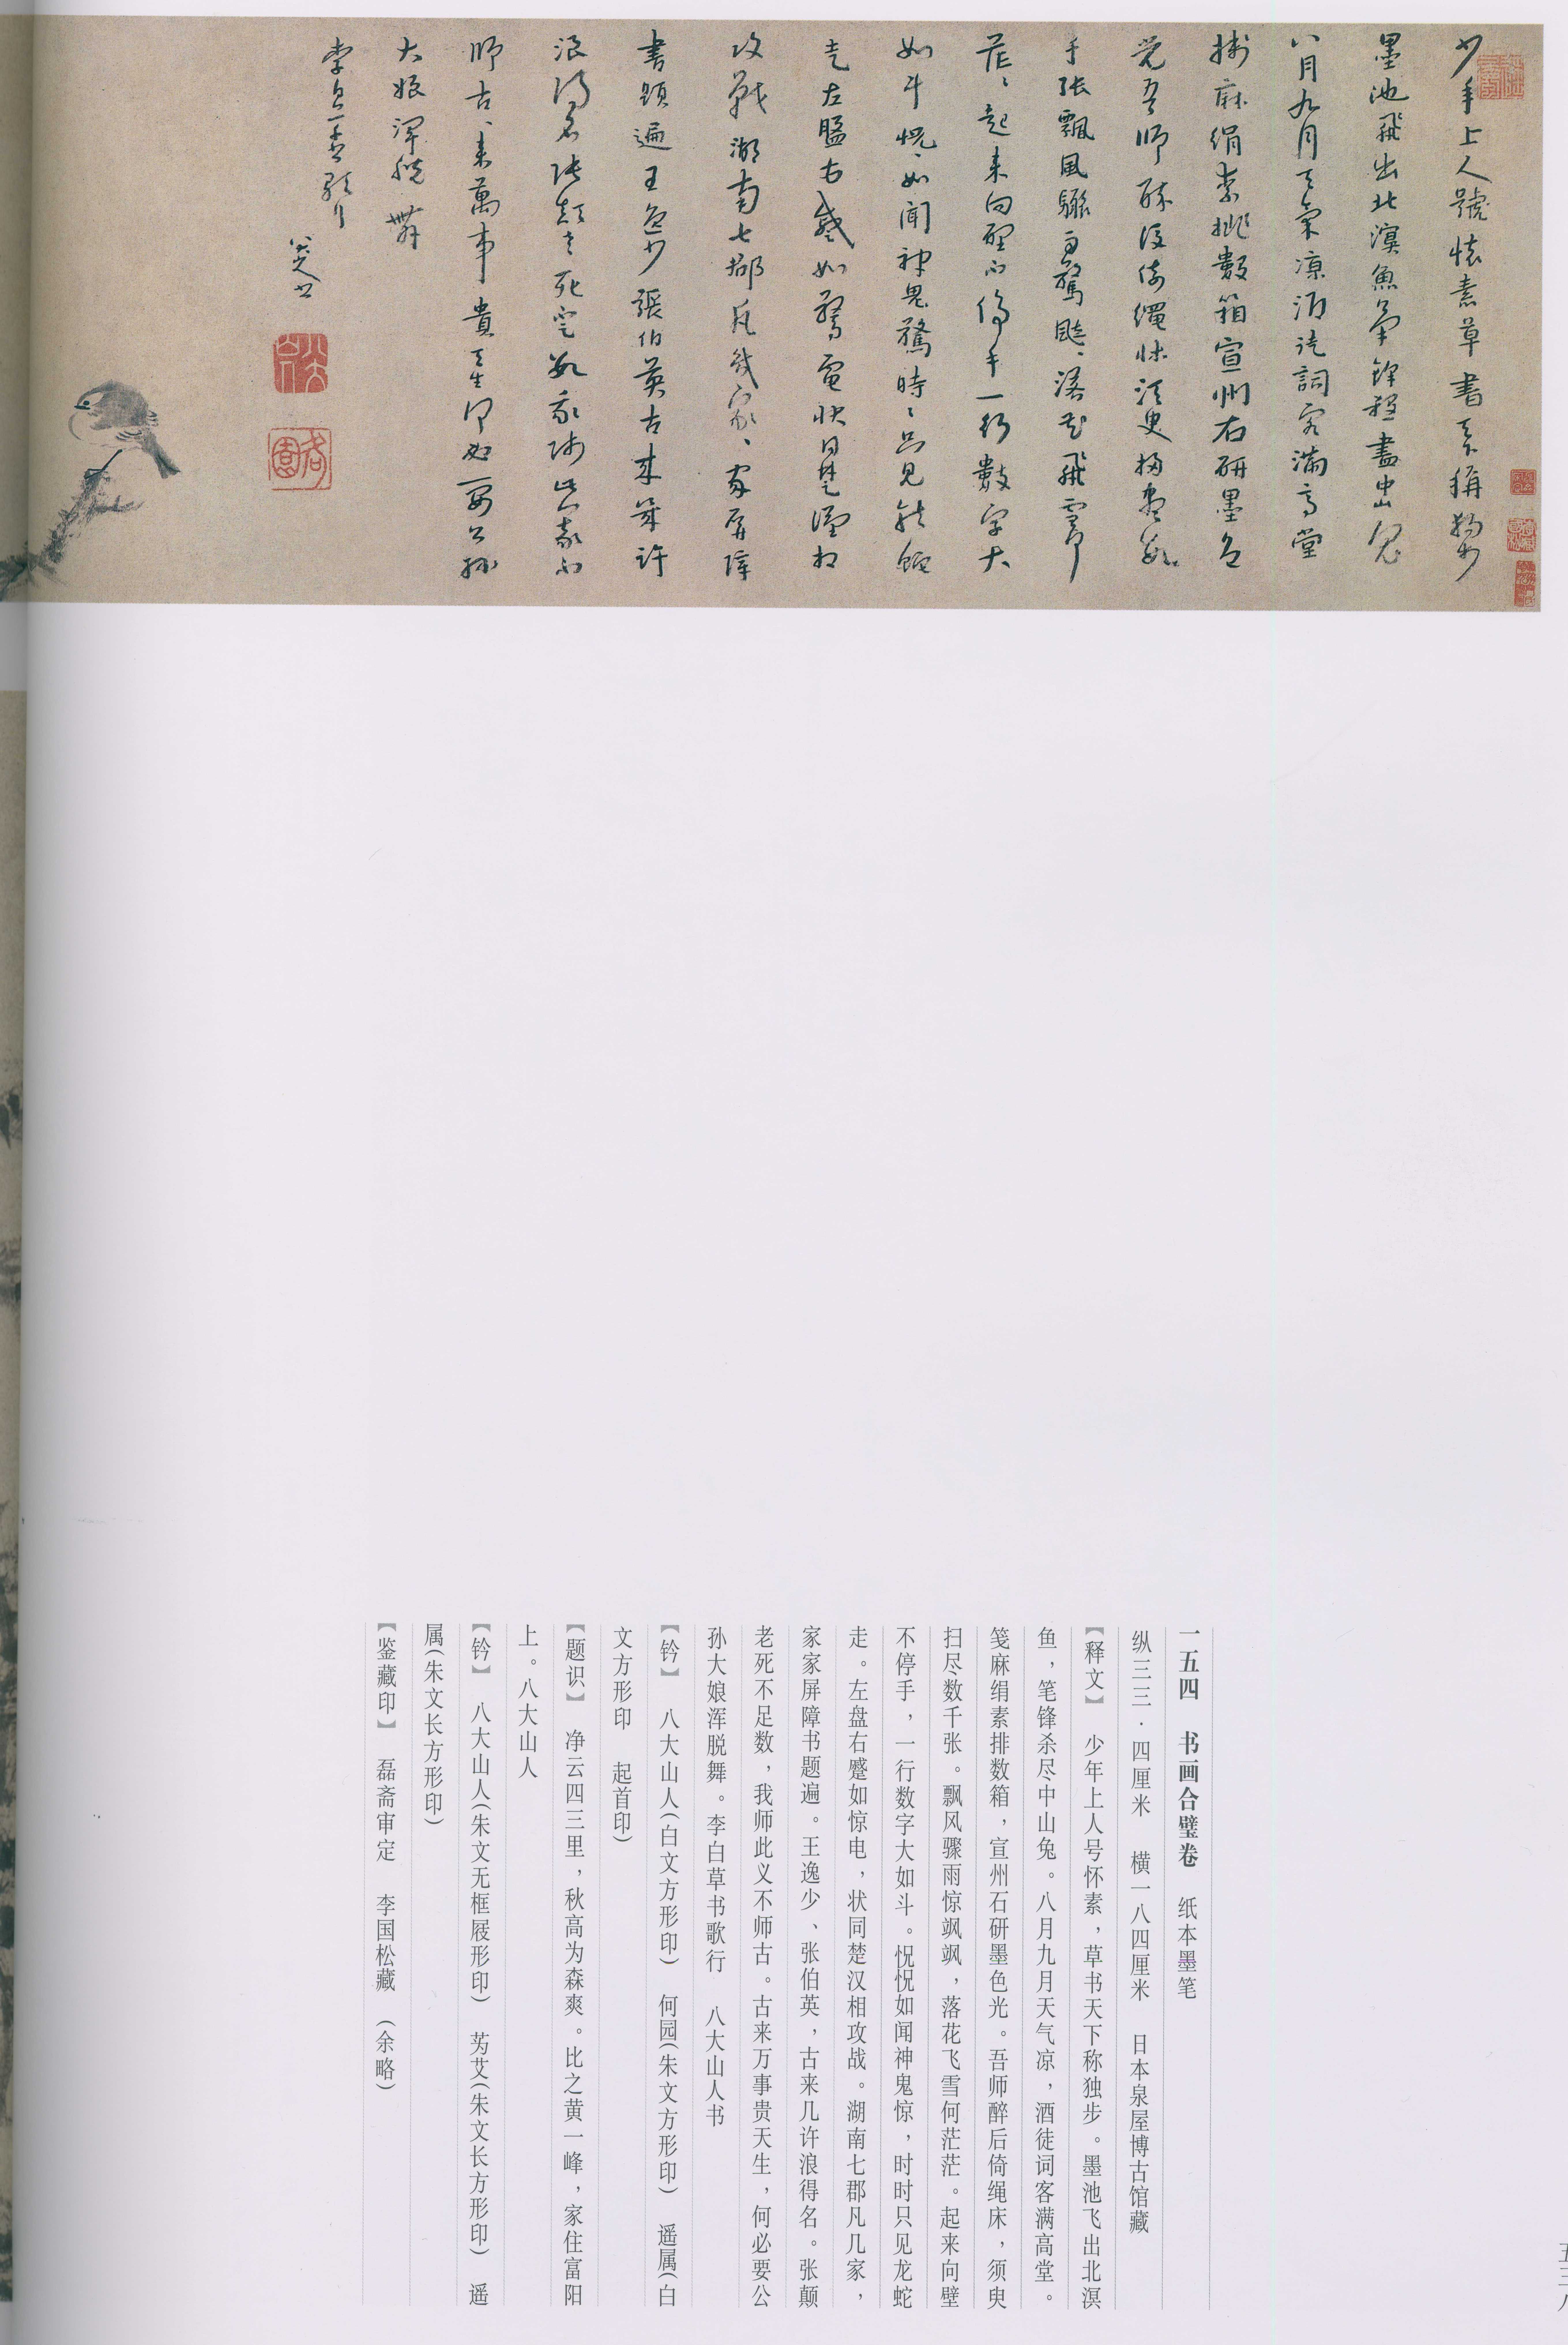 少年上人號懷素草書天下稱獨步
墨池飛出北溟魚筆鋒殺盡中山兔
八月九月天氣凉酒徒詞客滿高堂
牋麻絹素排數箱宣州石研墨色
光吾師醉後倚繩床須臾掃盡數
千張飄風驟雨驚颯、落花飛雪何
茫、起來向壁不停手一行數字大
如斗怳、如聞神鬼驚時、只見龍蛇
走左盤右蹙如驚電狀同楚漢相
攻戰湖南七郡凡幾家、家屏障
書題遍王逸少張伯英古來幾許
浪得名張顛老死不足數我師此義不
師古、來萬事貴天生何必要公孫
大娘渾脱舞
李白草書歌行
八大山人書
一五四 书画合璧卷 纸本墨笔
纵三三·四厘米 横一八四厘米 日本泉屋博古馆藏
【释文】 少年上人号怀素，草书天下称独步。墨池飞出北溟
鱼，笔锋杀尽中山兔。八月九月天气凉，酒徒词客满高堂。
笺麻绢素排数箱，宣州石研墨色光。吾师醉后倚绳床，须臾
扫尽数千张。飘风骤雨惊飒飒，落花飞雪何茫茫。起来向壁
不停手，一行数字大如斗。怳怳如闻神鬼惊，时时只见龙蛇
走。左盘右蹙如惊电，状同楚汉相攻战。湖南七郡凡几家，
家家屏障书题遍。王逸少、张伯英，古来几许浪得名。张颠
老死不足数，我师此义不师古。古来万事贵天生，何必要公
孙大娘浑脱舞。李白草书歌行 八大山人书
【钤】 八大山人(白文方形印) 何园(朱文方形印) 遥属(白
文方形印 起首印)
【题识】 净云四三里，秋高为森爽。比之黄一峰，家住富阳
上。八大山人
【钤】 八大山人(朱文无框屐形印) 芴艾(朱文长方形印) 遥
属(朱文长方形印)
【鉴藏印】 磊斋审定 李国松藏 (余略)
五三八